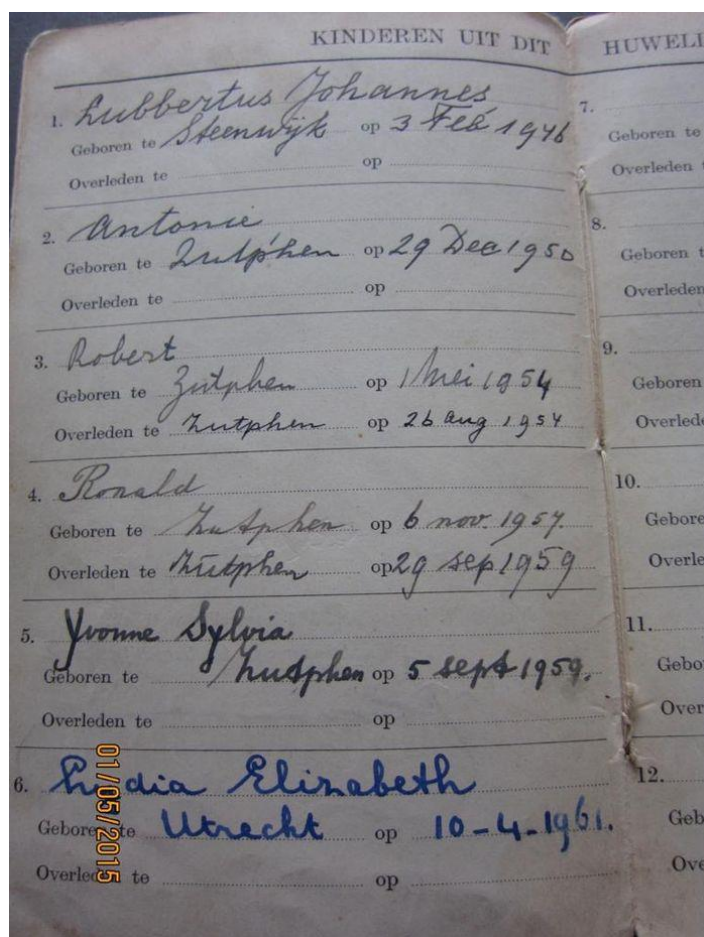 KINDEREN UIT DIT HUWELI
1. Lubbertus Johannes
Geboren te Steenwijk op 3 Feb 1946
Overleden te op
2. Antonie
Geboren te Zutphen op 29 Dec 1950
Overleden te op
3. Robert
Geboren te Zutphen op 1 Mei 1954
Overleden te Zutphen op 26 aug 1954
4. Ronald
Geboren te Zutphen op 6 nov. 1957.
Overleden te Zutphen op 29 sep 1959
5. Yvonne Sylvia
Geboren te Zutphen op 5 sept 1959.
Overleden te op
6. Lydia Elizabeth
Geboren te Utrecht op 10-4-1961.
Overleden te op
7.
Geboren te
Overleden t
8.
Geboren t
Overleden
9.
Geboren
Overled
10.
Gebore
Overle
11.
Gebo
Over
12.
Geb
Ove
01/05/2015